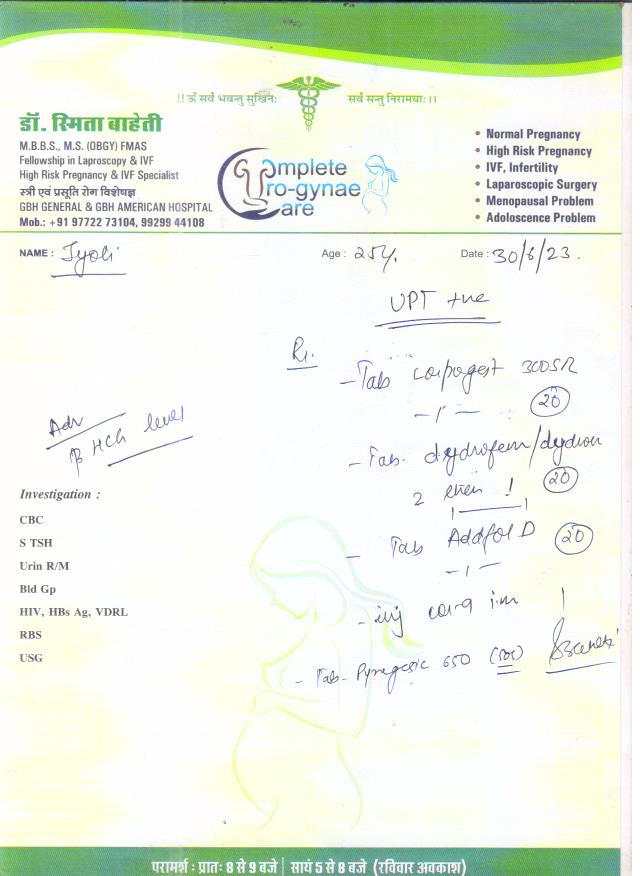 !! ॐ सर्वे भवन्तु सुखिनः सर्वे सन्तु निरामयाः ।।
डॉ. स्मिता बाहेती
M.B.B.S., M.S. (OBGY) FMAS
Fellowship in Laproscopy & IVF
High Risk Pregnancy & IVF Specialist
स्त्री एवं प्रसूति रोग विशेषज्ञ
GBH GENERAL & GBH AMERICAN HOSPITAL
Mob.: +91 97722 73104, 99299 44108
Complete
Uro-gynae
Care
• Normal Pregnancy
• High Risk Pregnancy
• IVF, Infertility
• Laparoscopic Surgery
• Menopausal Problem
• Adoloscence Problem
NAME : Jyoti Age : 25y. Date : 30/6/23.
UPT +ve
Rx.
- Tab 300SR
- 1 - 20
Adv
β HCG level
- Tab. dydrofem/dydron
2 20
- Tab Addfol D 20
- 1 -
- inj i.m
- Tab- Pyregesic 650 (SOS)
Investigation :
CBC
S TSH
Urin R/M
Bld Gp
HIV, HBs Ag, VDRL
RBS
USG
परामर्श : प्रातः 8 से 9 बजे | सायं 5 से 8 बजे (रविवार अवकाश)